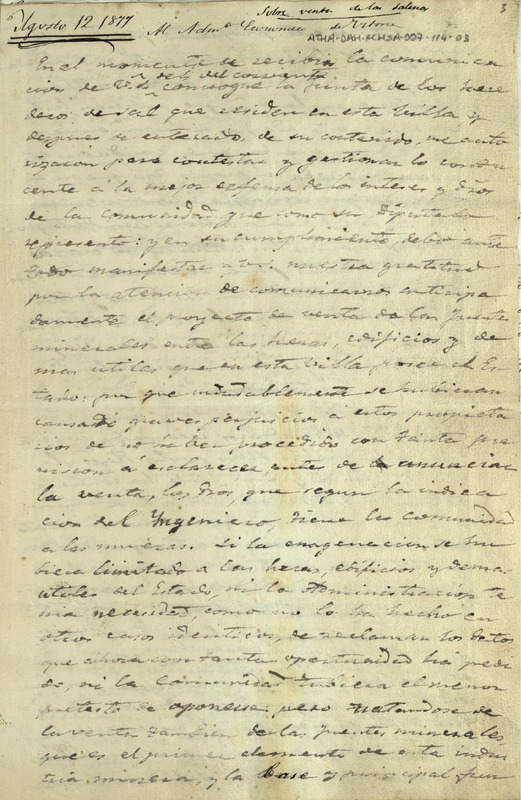 Sobre venta de las salinas 3
Agosto 12 1877
Al Admor Economico de Vitoria
ATHA-DAH-FCHSA-007-114-03
En el momento de recibir la comunica
cion de Vd del 4 del corriente
convoqué la Junta de los here
deros de sal que residen en esta Villa y
despues de enterados de su contenido, me auto
rizaron para contestar y gestionar lo condu
cente á la mejor defensa de los interes y dros
de la comunidad que como su Diputado
represento: y en su cumplimiento, debo ante
todo manifestar a Vd. nuestra gratitud
por la atencion de comunicarnos anticipa
damente el proyecto de venta de las fuentes
minerales entre las heras, edificios y de
mas utiles que en esta Villa posee el Es
tado: por que indudablemente se hubieran
causado graves perjuicios á estos propieta
rios de no haber procedido con tanta pre
vision á esclarecer antes de anunciar
la venta, los dros que segun la indica
cion del Ingeniero, tiene la comunidad
a las mueras. Si la enagenacion se hu
biera limitado a las heras, edificios y demas
utiles del Estado, ni la Administracion te
nia necesidad, como no lo ha hecho en
otros casos identicos, de reclamar los datos
que ahora con tanta oportunidad ha pedi
do, ni la Comunidad tubiera el menor
pretesto de oponerse: pero tratandose de
la venta tambien de las fuentes minerales
que es el primer elemento de esta indus
tria minera, y la base y principal fun